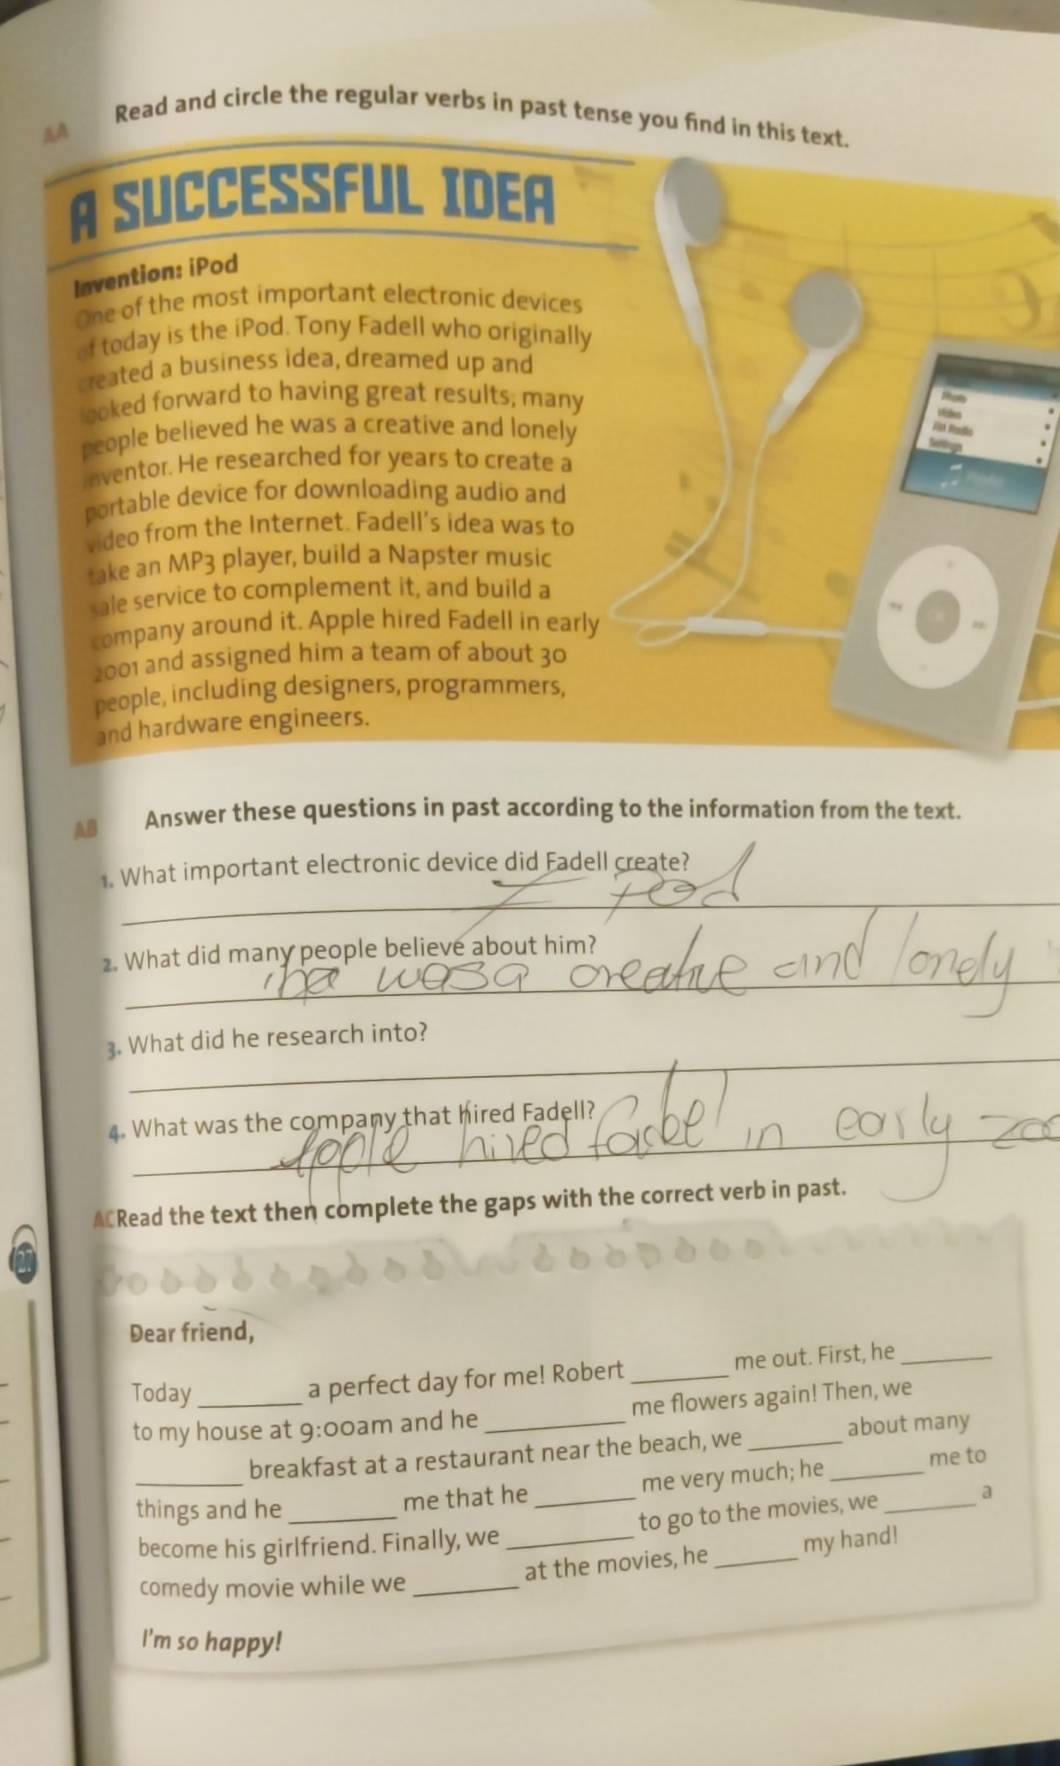 AA Read and circle the regular verbs in past tense you find in this text.
A SUCCESSFUL IDEA
Invention: iPod
One of the most important electronic devices
of today is the iPod. Tony Fadell who originally
created a business idea, dreamed up and
looked forward to having great results; many
people believed he was a creative and lonely
inventor. He researched for years to create a
portable device for downloading audio and
video from the Internet. Fadell's idea was to
take an MP3 player, build a Napster music
sale service to complement it, and build a
company around it. Apple hired Fadell in early
2001 and assigned him a team of about 30
people, including designers, programmers,
and hardware engineers.
AB Answer these questions in past according to the information from the text.
1. What important electronic device did Fadell create?
I Pod
2. What did many people believe about him?
he was a creative and lonely
3. What did he research into?
4. What was the company that hired Fadell?
Apple hired in early
AC Read the text then complete the gaps with the correct verb in past.
27
Dear friend,
Today ________ a perfect day for me! Robert ________ me out. First, he ________
to my house at 9:00am and he ________ me flowers again! Then, we
________ breakfast at a restaurant near the beach, we ________ about many
things and he ________ me that he ________ me very much; he ________ me to
become his girlfriend. Finally, we ________ to go to the movies, we ________ a
comedy movie while we ________ at the movies, he ________ my hand!
I'm so happy!